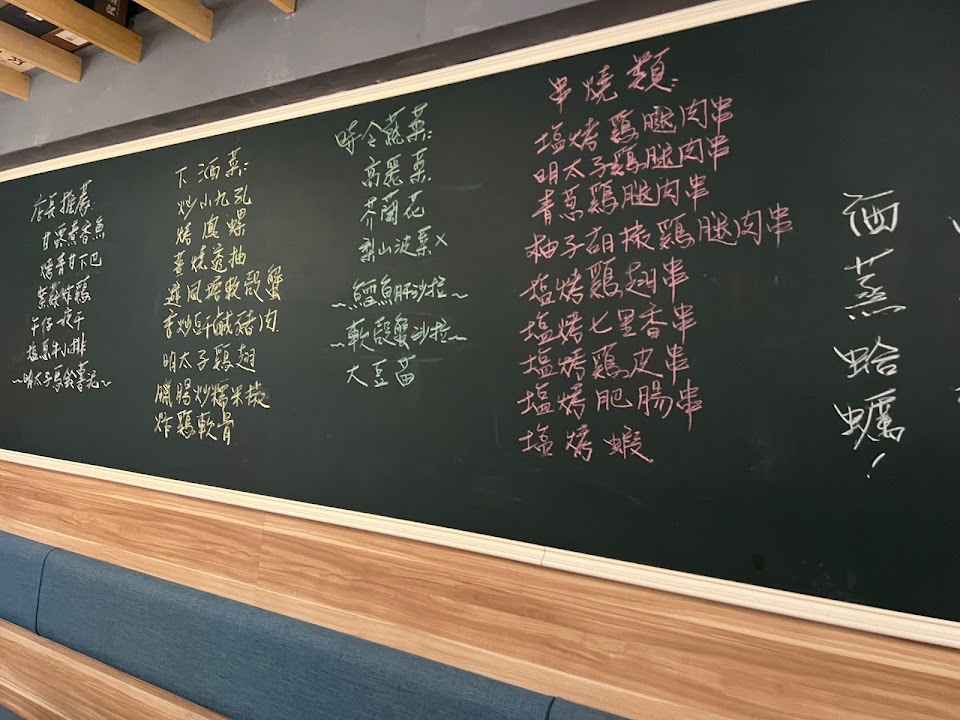 店長推薦:
甘露煮香魚
烤青甘下巴
紫蘇炸鷄
午仔一夜干
塩蔥牛小排
~明太子馬鈴薯泥~
下酒菜:
炒小九孔
烤鳳螺
薑燒透抽
避風塘軟殼蟹
香炒豆干鹹豬肉
明太子鷄翅
臘腸炒糯米椒
炸鷄軟骨
時令蔬菜:
高麗菜
芥蘭花
梨山波菜x
~鱈魚肝沙拉~
~軟殼蟹沙拉~
大豆苗
串燒類:
塩烤鷄腿肉串
明太子鷄腿肉串
青蔥鷄腿肉串
柚子胡椒鷄腿肉串
塩烤鷄翅串
塩烤七里香串
塩烤鷄皮串
塩烤肥腸串
塩烤蝦
酒蒸蛤蠣!